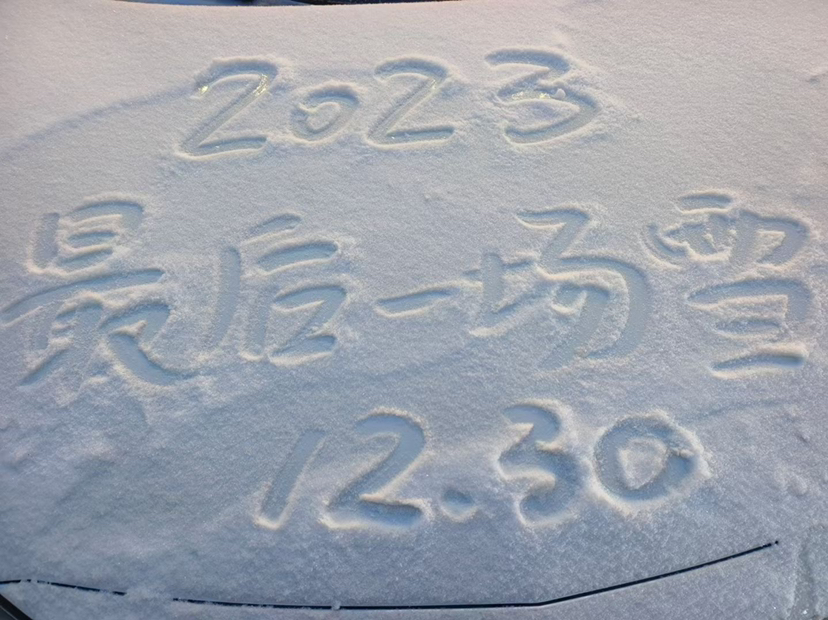 2023
最后一场雪
12.30